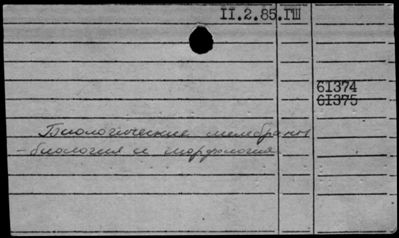 II.2.85.ГШ
61374
61375
Биологические мембраны
- биология и морфология